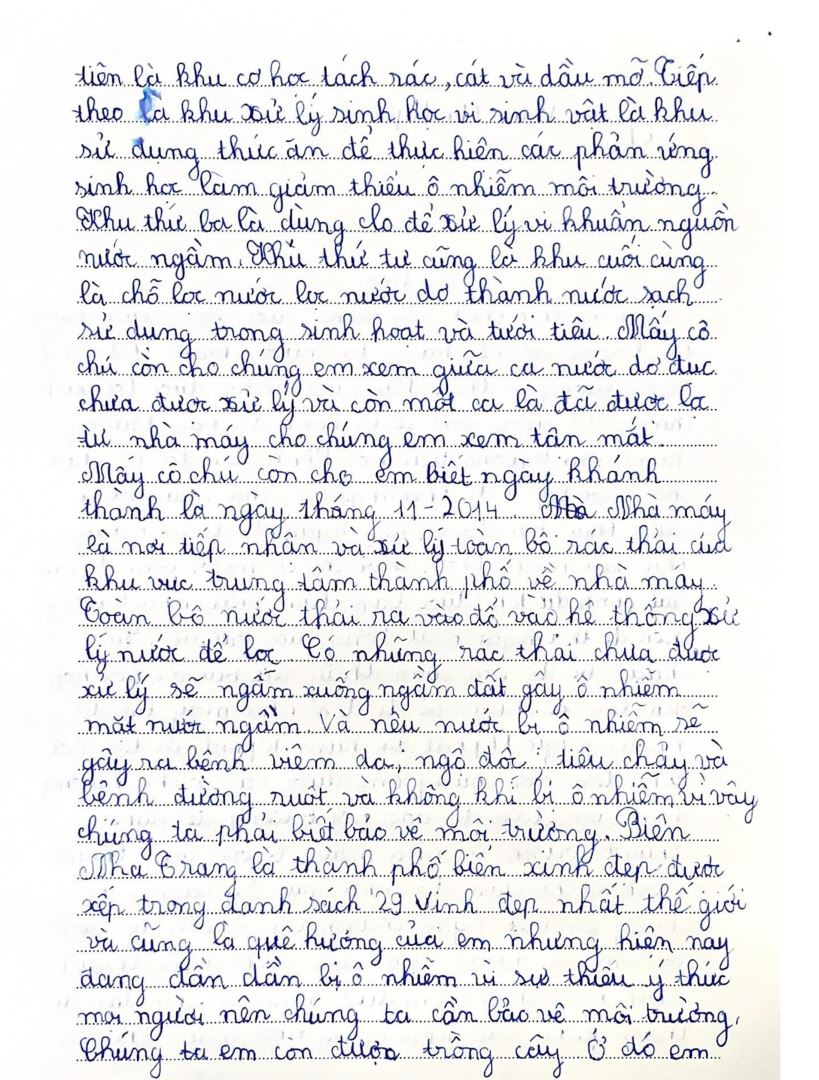 tiên là khu cơ học tách rác, cát và dầu mỡ. Tiếp
theo là khu xử lý sinh học vi sinh vật là khu
sử dụng thức ăn để thực hiện các phản ứng
sinh học làm giảm thiểu ô nhiễm môi trường.
Khu thứ ba là dùng clo để xử lý vi khuẩn nguồn
nước ngầm. Khu thứ tư cũng là khu cuối cùng
là chỗ lọc nước lọc nước dơ thành nước sạch
sử dụng trong sinh hoạt và tưới tiêu. Mấy cô
chú còn cho chúng em xem giữa ca nước dơ đục
chưa được xử lý và còn một ca là đã được lọ
từ nhà máy cho chúng em xem tận mắt.
Mấy cô chú còn cho em biết ngày khánh
thành là ngày tháng 11-2014. Nhà máy
là nơi tiếp nhận và xử lý toàn bộ rác thải của
khu vực trung tâm thành phố về nhà máy.
Toàn bộ nước thải ra vào đó vào hệ thống xử
lý nước để lọc. Có những rác thải chưa được
xử lý sẽ ngấm xuống ngầm đất gây ô nhiễm
mặt nước ngầm. Và nếu nước bị ô nhiễm sẽ
gây ra bệnh viêm da, ngộ độc, tiêu chảy và
bệnh đường ruột và không khí bị ô nhiễm vì vậy
chúng ta phải biết bảo vệ môi trường. Biển
Nha Trang là thành phố biển xinh đẹp được
xếp trong danh sách 29 Vịnh đẹp nhất thế giới
và cũng là quê hương của em nhưng hiện nay
đang dần dần bị ô nhiễm vì sự thiếu ý thức
mọi người nên chúng ta cần bảo vệ môi trường.
Chúng ta em còn được trồng cây. Ở đó em